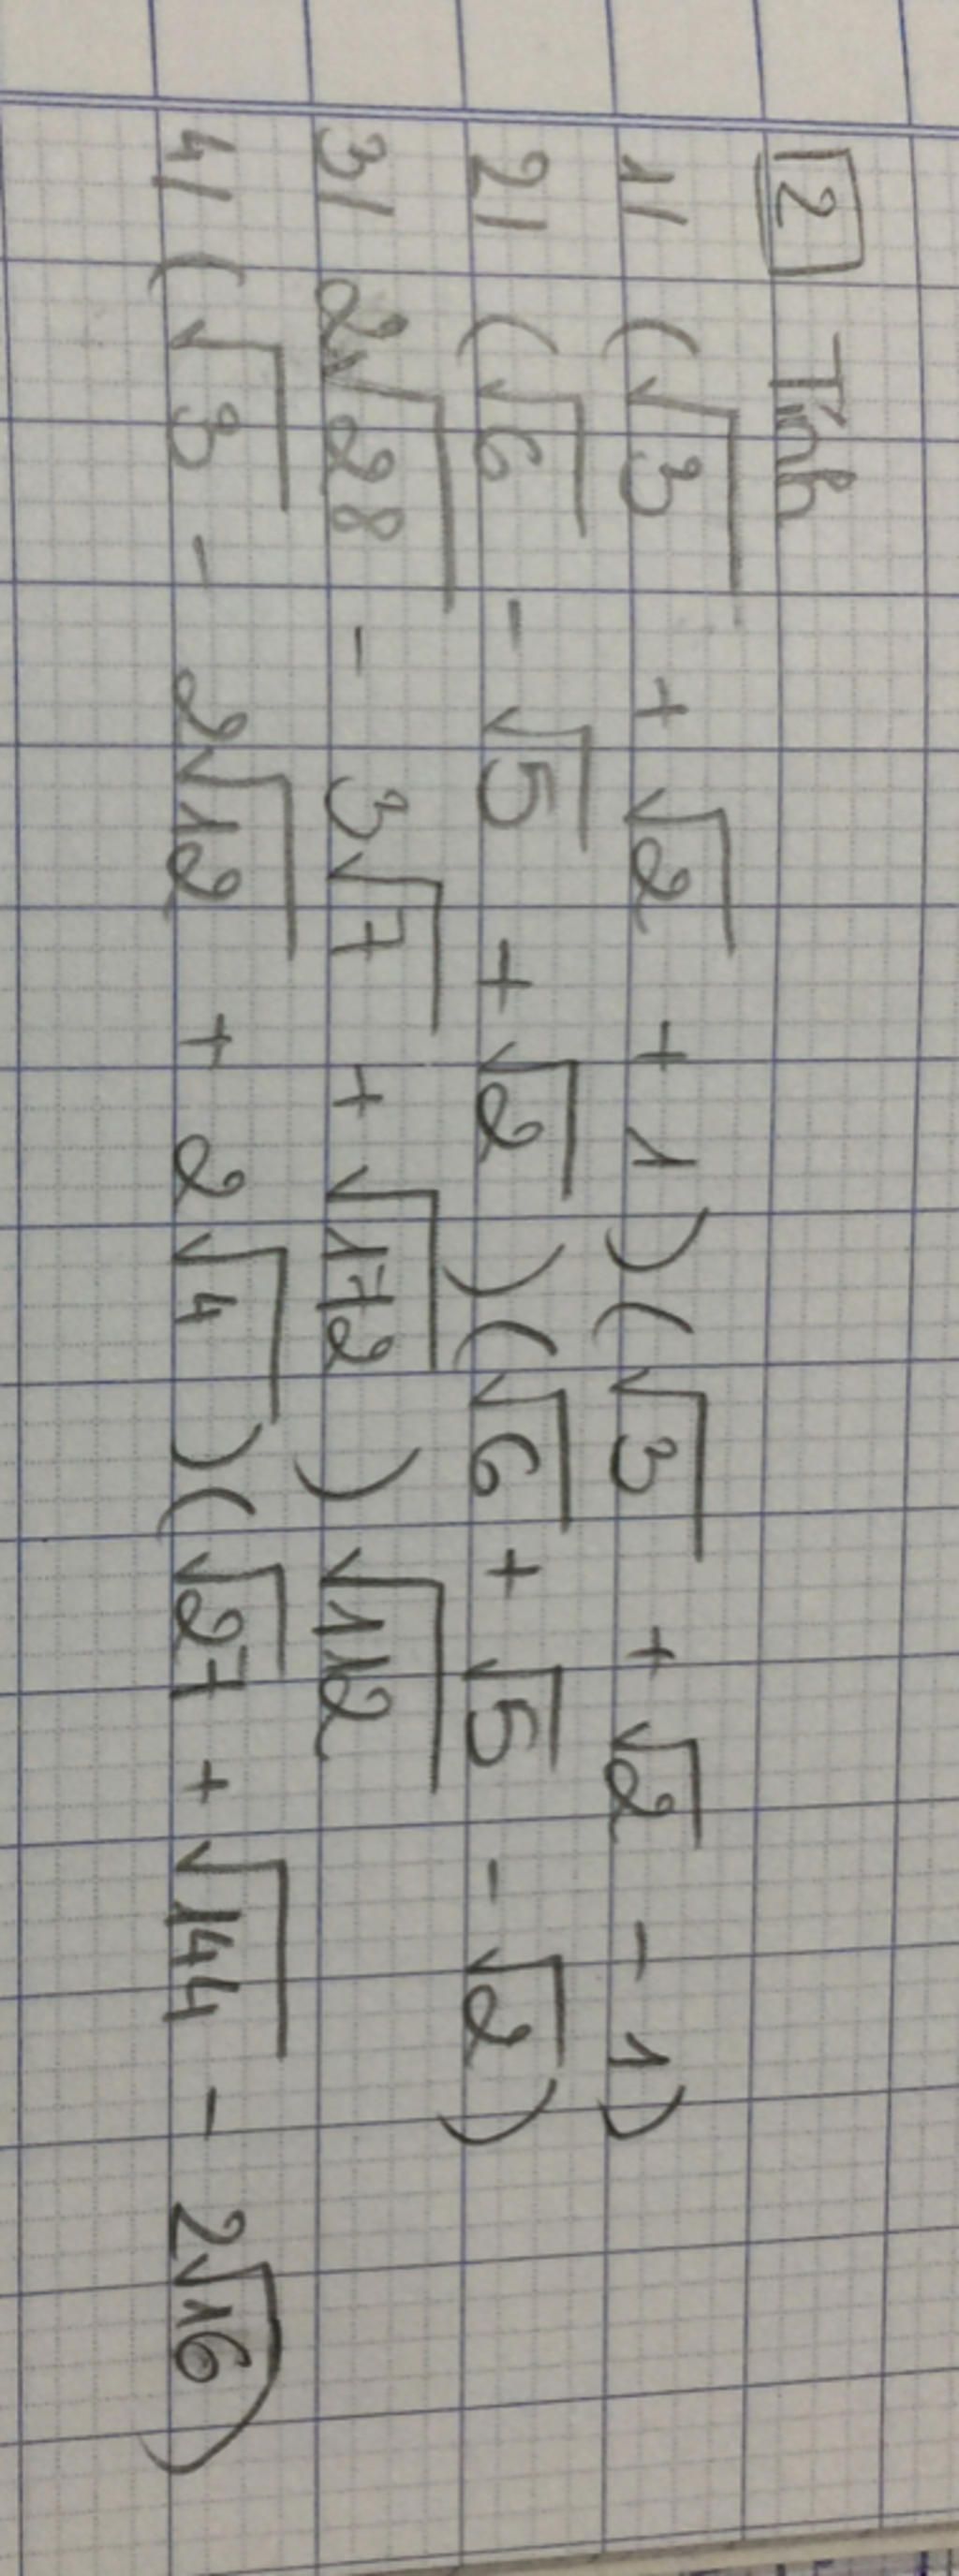 2 Tính
1/ (√3 + √2 + 1)(√3 + √2 - 1)
2/ (√6 - √5 + √2)(√6 + √5 - √2)
3/ 2√28 - 3√7 + √172)√112
4/ (√3 - 2√12 + 2√4)(√27 + √144 - 2√16)